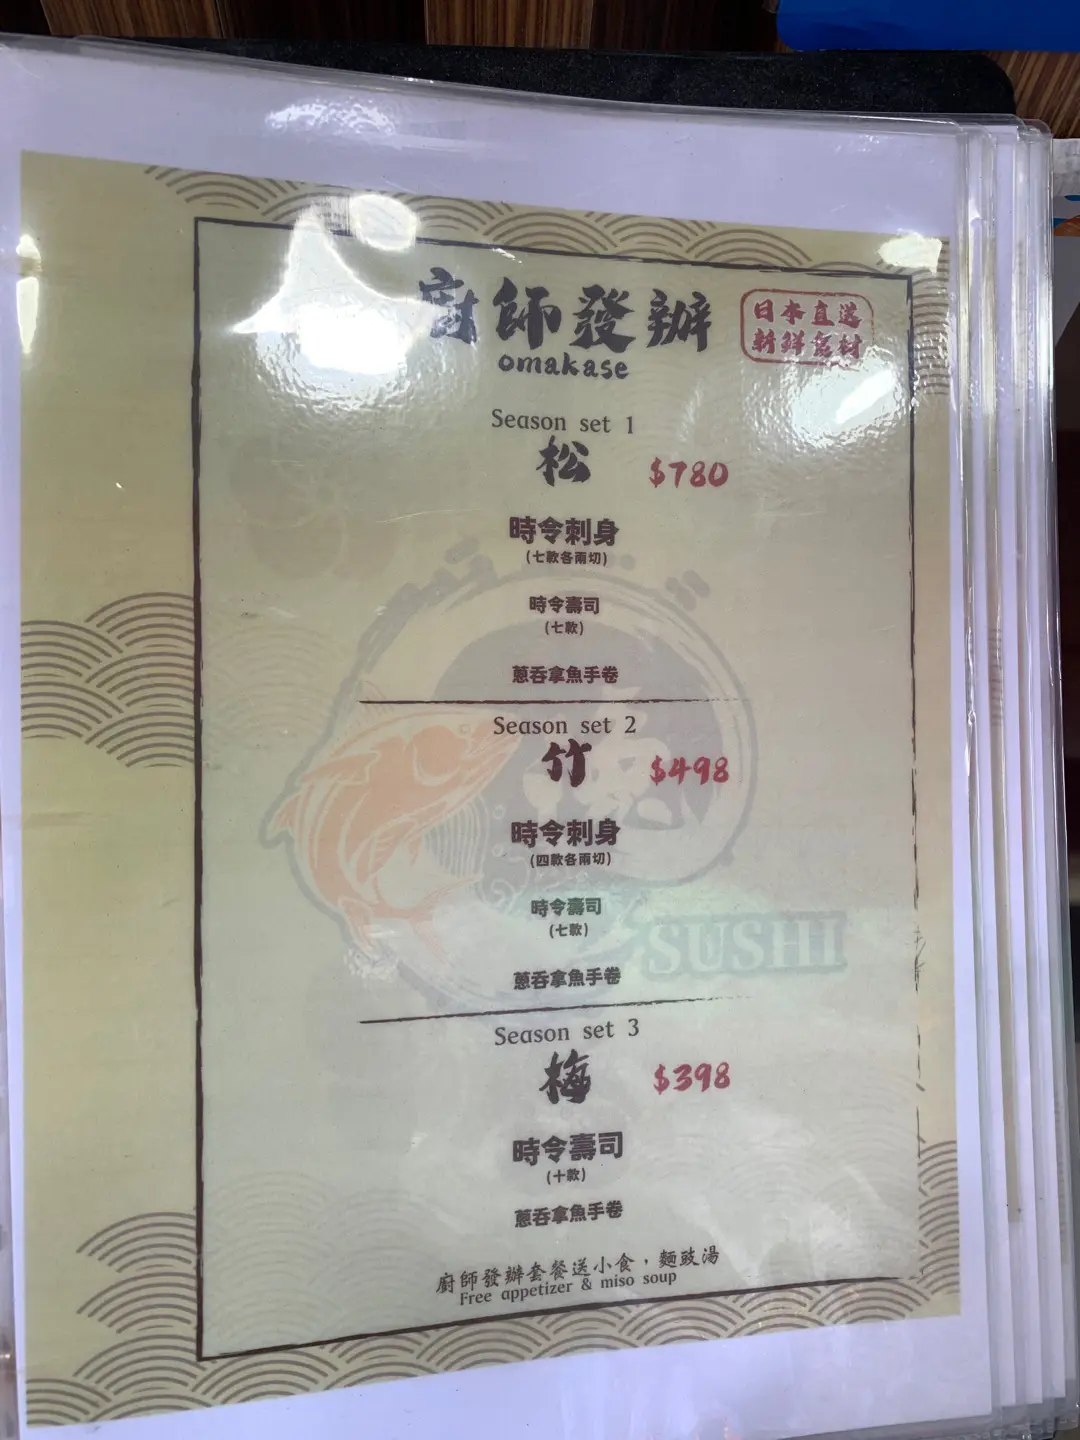 廚師發辦
omakase
日本直送
新鮮食材
Season set 1
松
$780
時令刺身
(七款各兩切)
時令壽司
(七款)
蔥吞拿魚手卷
Season set 2
竹
$498
時令刺身
(四款各兩切)
時令壽司
(七款)
蔥吞拿魚手卷
SUSHI
Season set 3
梅
$398
時令壽司
(十款)
蔥吞拿魚手卷
廚師發辦套餐送小食，麵豉湯
Free appetizer & miso soup